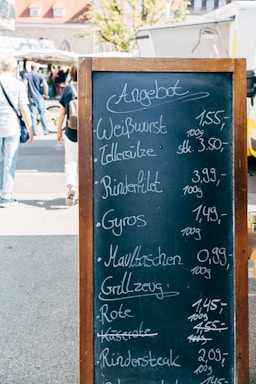 Angebot
·Weißwurst 1,55,-
100g
·Tellersülze Stk. 3.90,-
·Rinderfilet 3,99,-
100g
·Gyros 1,49,-
100g
·Maultaschen 0,99,-
100g
Grillzeug:
·Rote 1,45,-
100g
·Käserote 1,55,-
100g
·Rindersteak 2,09,-
100g